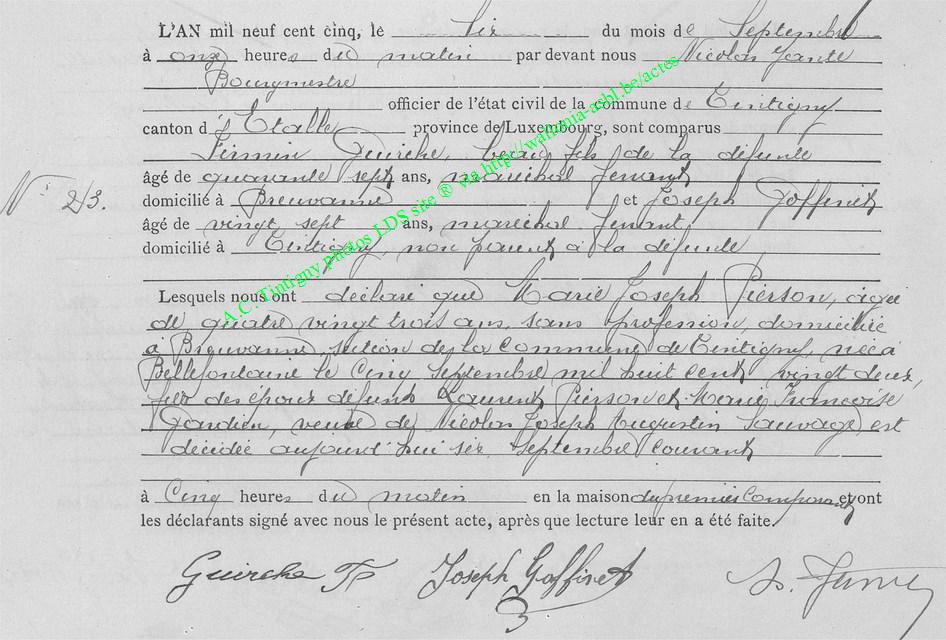 L'AN mil neuf cent cinq, le six du mois de Septembre
à onze heures du matin par devant nous Nicolas
Bourgmestre
officier de l'état civil de la commune de Tintigny
canton d'Etalle province de Luxembourg, sont comparus
Firmin Guirche, beau fils de la défunte
âgé de quarante sept ans, maréchal ferrant
N° 23.
domicilié à Breuvanne et Joseph Goffinet
âgé de vingt sept ans, maréchal ferrant
domicilié à Tintigny, non parent à la défunte
A.C. Tintigny photos LDS site ® via http://wallonia-asbl.be/actes
Lesquels nous ont déclaré que Marie Joseph Pierson, âgée
de quatre vingt trois ans, sans profession, domiciliée
à Breuvanne, section de la commune de Tintigny, née à
Bellefontaine le cinq Septembre mil huit cent vingt deux,
fille des époux défunts Laurent Pierson et Marie Françoise
veuve de Nicolas Joseph Augustin Sauvage, est
décédée aujourd'hui six Septembre courant
à Cinq heures du matin en la maison du premier Comparant et ont
les déclarants signé avec nous le présent acte, après que lecture leur en a été faite.
Guirche F Joseph Goffinet